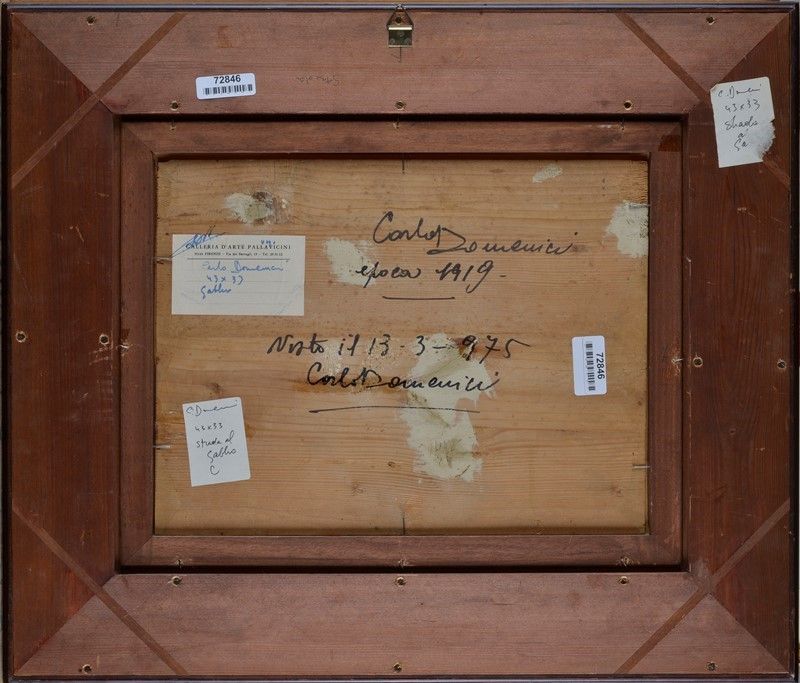 72846
C. Domenici
43x33
Strada
a
Ga
GALLERIA D'ARTE PALLAVICINI
Carlo Domenici
43 x 33
Gabbro
Carlo Domenici
epoca 1919.
Visto il 13-3-975
Carlo Domenici
72846
C. Domenici
43x33
strada al
Gabbro
C